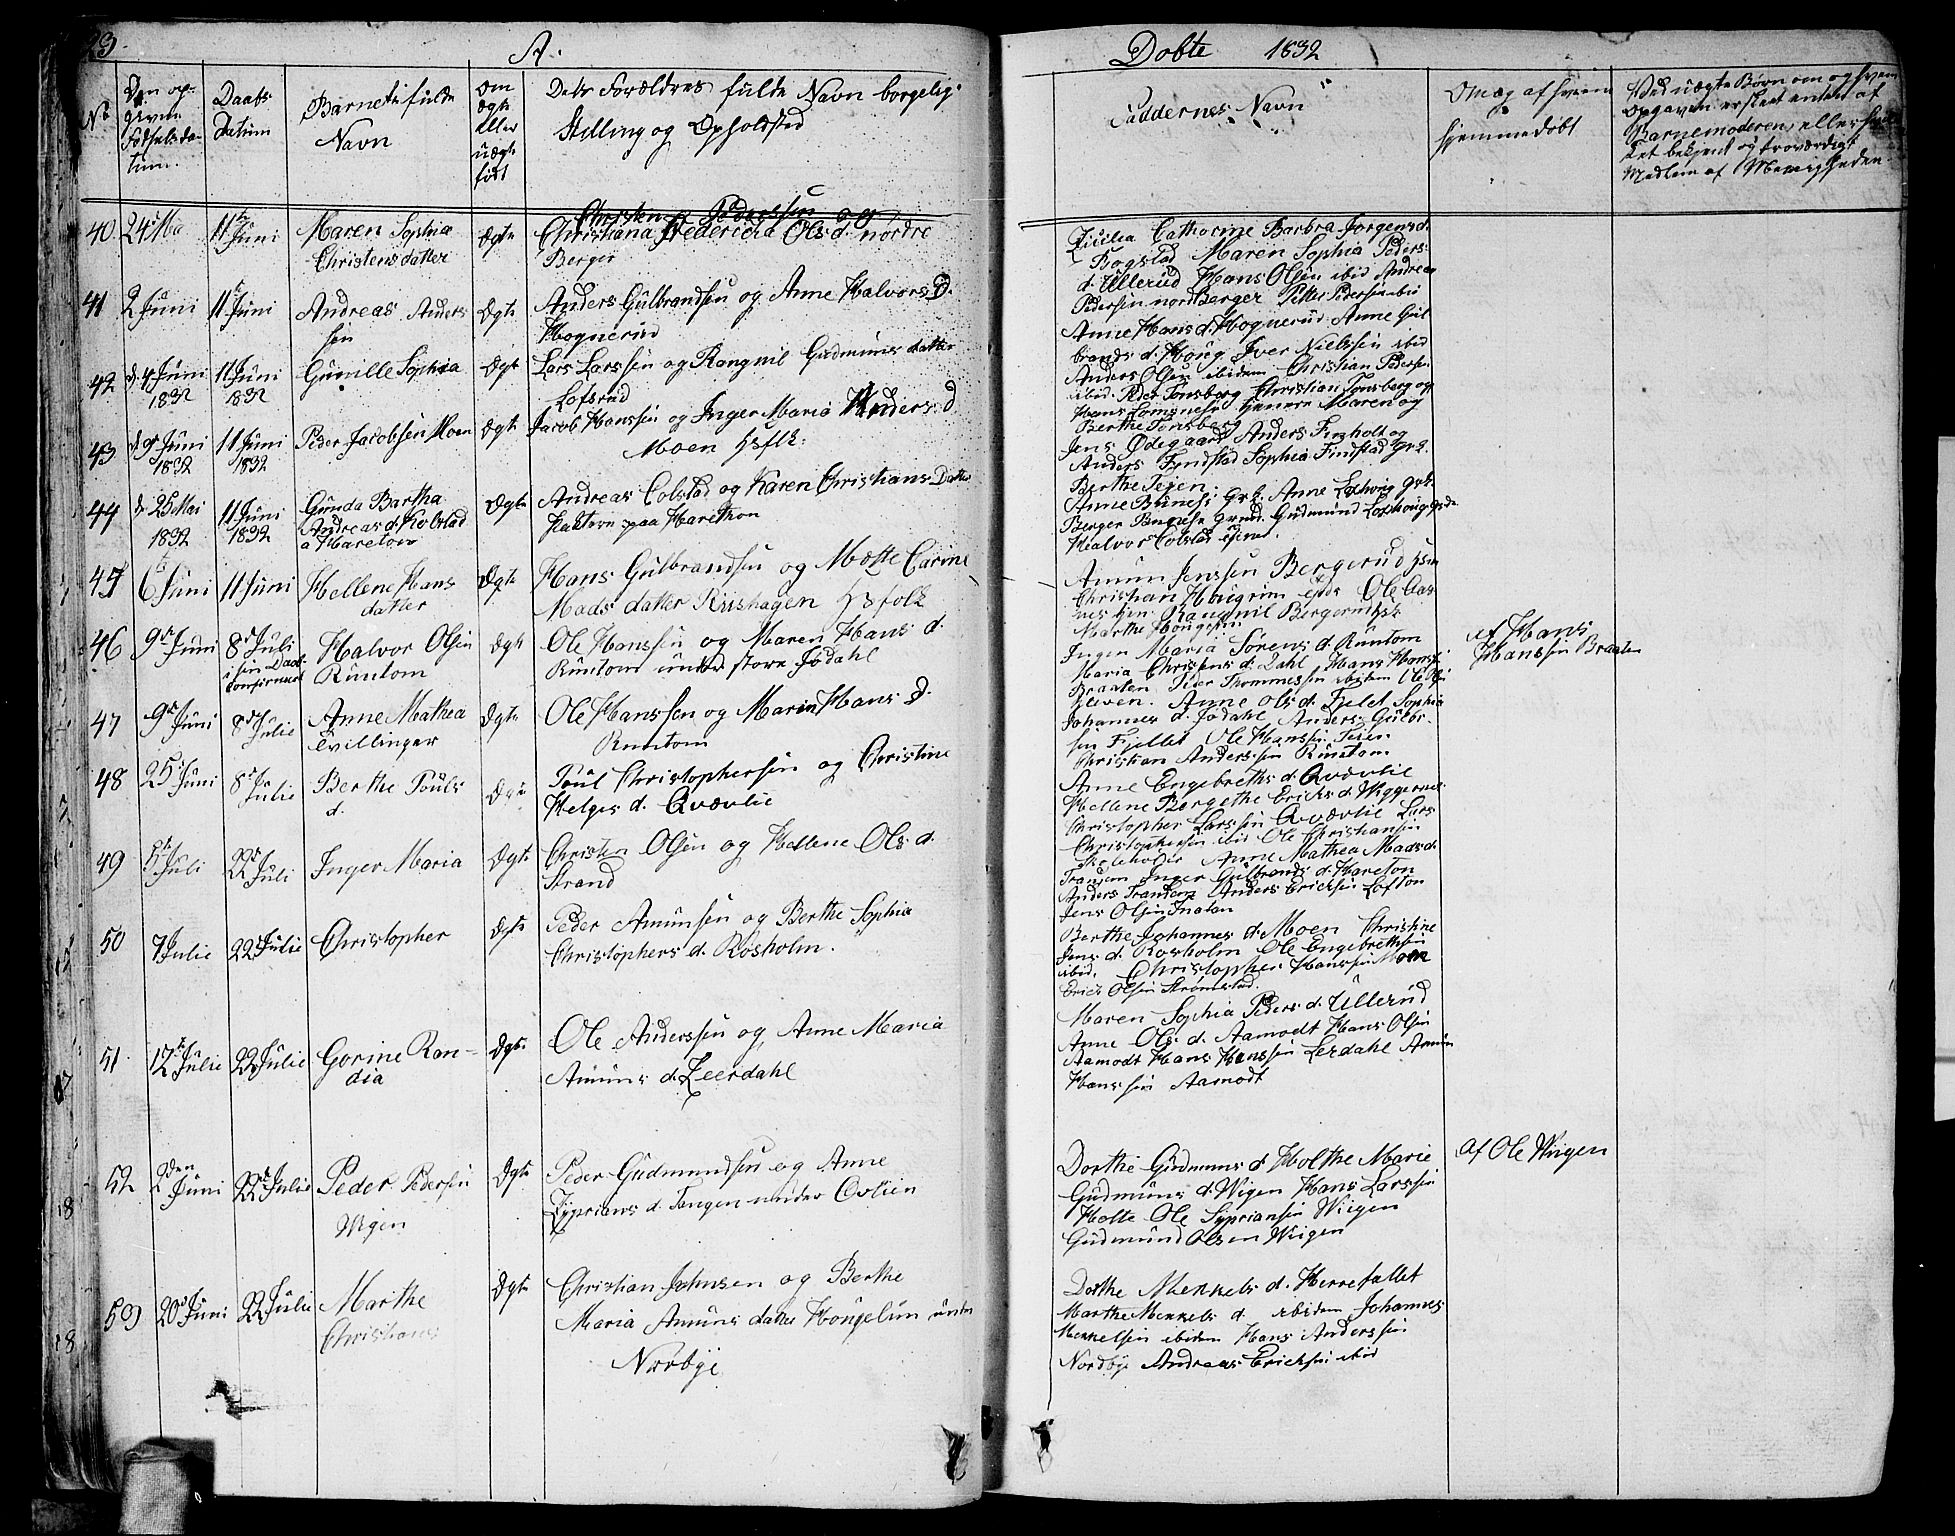 23.
A.
Døbte 1832
No
Den op-
given
Fødselsda-
tum.
Daabs
Datum
Barnets fulde
Navn
Om
ægte
eller
uægte
født
Dets Forældres fulde Navn borgelig
Stilling og Opholdsted
Faddernes Navn
Om og af hvem
hjemmedøbt
Ved uægte Børn om og hvem
Opgaven er skeet enten af
Barnemoderen, eller
bekjent og troværdigt
Medlem af Menigheden.
40. 24 Mai 11 Juni
Maren Sophia
Christensdatter
Ægte
Christen Pederssen og
Christiana Fredericia Ols d. nordre
Berger
Catharine Barbra Jørgens d.
Bogstad Maren Sophia Peders
d. Ullerud Hans Olsen ibid Andreas
Pedersen nord Berger Petter Pedersen ibid
41 2 Juni 11 Juni
Andreas Anders
sen
Ægte
Anders Gulbrandsen og Anne Halvors D.
Hognerud
Anne Hans d. Hognerud Anne Gul
brands d. Houg Iver Nielssen ibid
Anders Olsen ibidem Christian Peders.
42 d. 4 Juni
1832
11 Juni
1832
Gunille Sophia
Ægte
Lars Larssen og Rangnil Gudmuns datter
Lofsrud
ibid. Peder Tonsberg Christian Tonsberg og
Hans Maren og
Berthe Tonsberg
43 d. 9 Juni
1832
11 Juni
1832
Peder Jacobsen Moen
Ægte
Jacob Hanssen og Inger Maria Anders d
Moen Hsflk.
Jens Ødegaard Anders og
Anders Fyndstad Sophia Findstad Grk.
Berthe Teien.
44 d. 25 Mai
1832
11 Juni
1832
Gunda Bartha
Andreas d. Kolstad
a Hareton
Ægte
Andreas Colstad og Karen Christians Datter
paa Harethon
Anne Grk. Anne Grk.
Berger Gudmund
Halvor Colstad
45 6 Juni 11 Juni
Hellene Hans
datter
Ægte
Hans Gulbrandsen og Mette Carine
Mads datter Riishagen Hsfolk
Amun Jenssen Bergerud
Christian Hougrim Ole Aas
Rangnil Bergerud
Marthe
46 9 Juni
8 Juli
i sin Daab
confirmeret
Halvor Olsen
Runtom
Ægte
Ole Hanssen og Maren Hans d.
Runtom under store Jødahl
Ingen Maria Sørens d. Runtom
Maria Christens d. Dahl Hans Hans
Braaten Peder Thommessen ibidem
af Hans
Hanssen Braaten
47 9 Juni 8 Julie
Anne Mathea
tvillinger
Ægte
Ole Hanssen og Maren Hans D.
Runtom
Anne Ols d. Fjelet Sophia
Johannes d. Jødahl Anders Gulbr.
sen Fjellet Ole Hanssen Teien
Christian Anderssen Runtom
48 25 Juni 8 Julie
Berthe Pouls
d.
Ægte
Poul Christophersen og Christine
Helges d. Qvævlie
Anne Engebreths d. Qvævlie
Hellene Bergethe Ericks d. Wiggernes
Christopher Larssen Qvævlie Lars
Christophersen ibid Ole Christiansen
49 5 Juli 22 Juli
Inger Maria
Ægte
Christen Olsen og Hellene Ols d.
Strand
Skoleholder Anne Mathea Mads d.
Trandem Inger Gulbrands d. Hareton
Anders Trandem Anders Ericksen Lofton
Jens Olsen
50 7 Julie 22 Julie
Christopher
Ægte
Peder Amunsen og Berthe Sophia
Christophers d. Rosholm.
Berthe Johannes d. Moen Christine
Jens d. Rosholm Ole Engebrethsen
ibid. Christopher Hanssen Moen
Erick Olsen Strømstad.
51. 12 Julie 22 Julie
Gorine Ran-
dia
Ægte
Ole Anderssen og Anne Maria
Amuns d. Leerdahl
Maren Sophia Peders d. Ullerud
Anne Ols d. Aamodt Hans Olsen
Aamodt Hans Hanssen Lerdahl Amun
Hanssen Aamodt
52 2den
Juni
22 Julie
Peder Pedersen
Wigen
Ægte
Peder Gudmundsen og Anne
Zyprians d. Tangen under Ovlien
Dorthe Gudmuns d. Holthe Marie
Gudmuns d. Wigen Hans Larssen
Holte Ole Sypriansen Wiigen
Gudmund Olsen Wiigen
Af Ole Wiigen
53 20 Juni 22 Julie
Marthe
Christians
Ægte
Christian Johnsen og Berthe
Maria Amuns datter Hougelun under
Nordbye
Dorthe Menkels d. Herrefallet
Marthe Menkels d. ibidem Johannes
Menkelsen ibidem Hans Anderssen
Nordbye Andreas Ericksen ibid